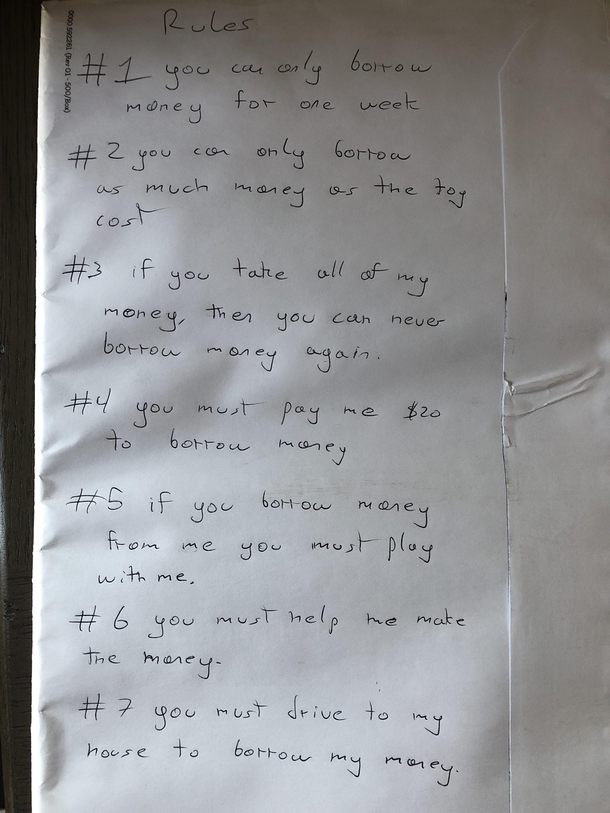 Rules
0000 592261 (Rev 01 - 500/Box)
#1 you can only borrow
money for one week
#2 you can only borrow
as much money as the toy
cost
#3 if you take all of my
money, then you can never
borrow money again.
#4 you must pay me $20
to borrow money
#5 if you borrow money
from me you must play
with me.
#6 you must help me make
the money.
#7 you must drive to my
house to borrow my money.